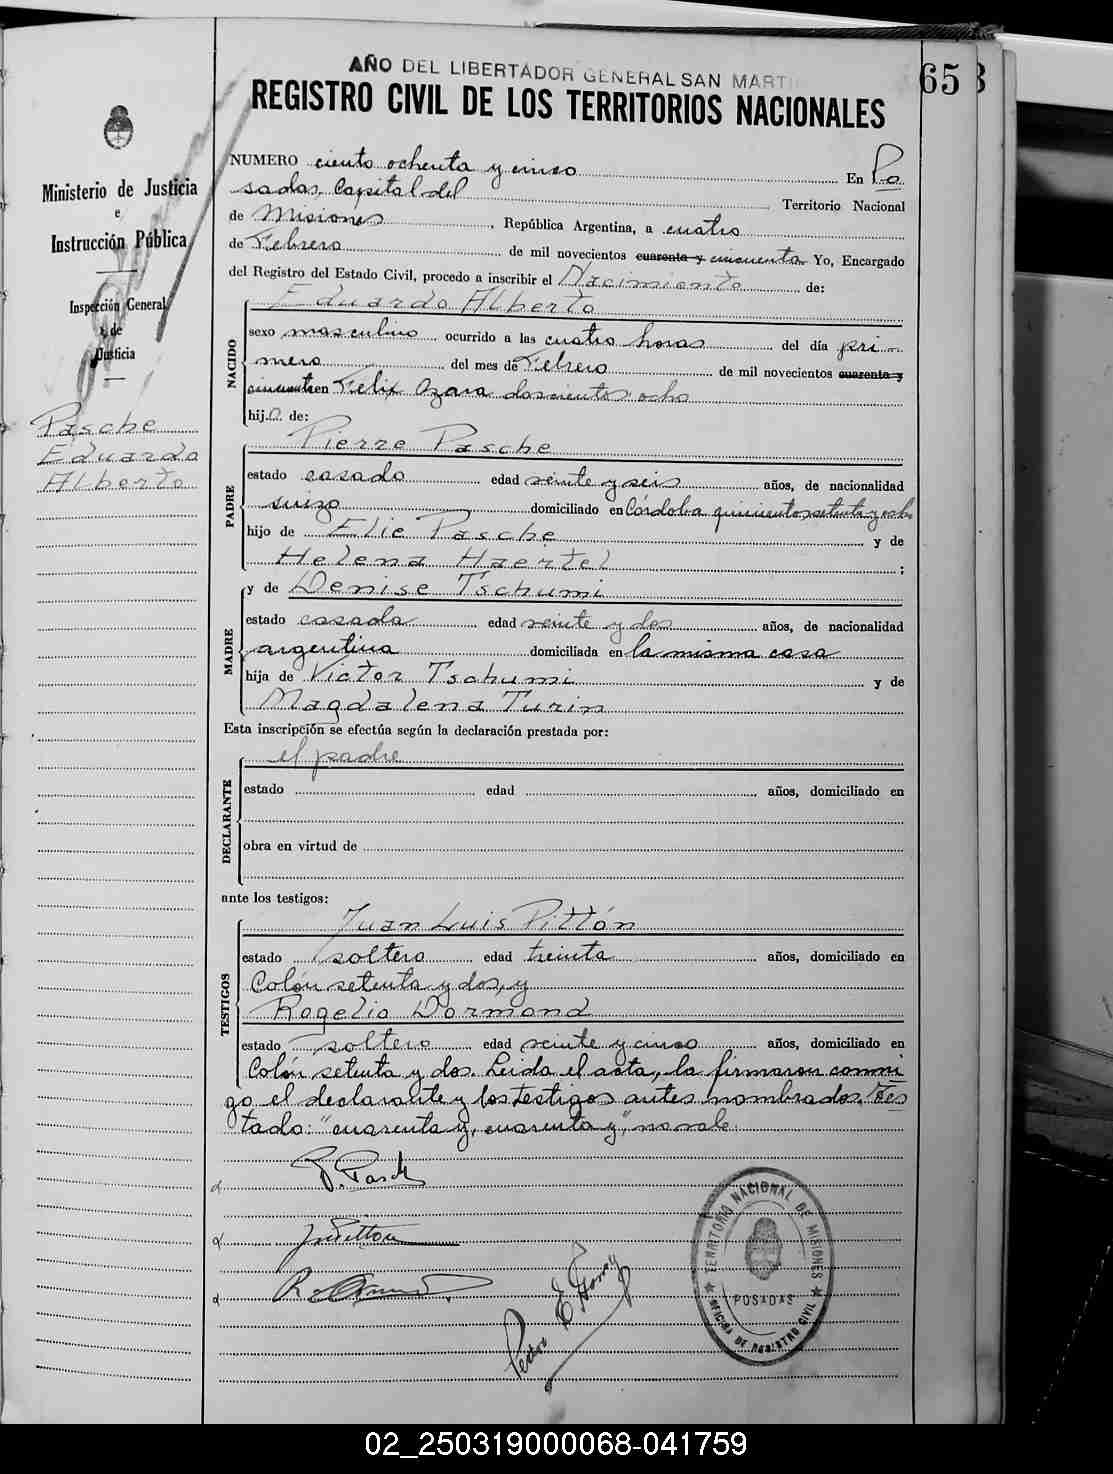 AÑO DEL LIBERTADOR GENERAL SAN MARTI
REGISTRO CIVIL DE LOS TERRITORIOS NACIONALES
658
Ministerio de Justicia
e
Instrucción Pública
Inspección General
de
Justicia
Pasche
Eduardo
Alberto
NUMERO ciento ochenta y cinco En Po
sadas, Capital del Territorio Nacional
de Misiones, República Argentina, a cuatro
de Febrero de mil novecientos cuarenta y cincuenta Yo, Encargado
del Registro del Estado Civil, procedo a inscribir el Nacimiento de:
NACIDO
Eduardo Alberto
sexo masculino ocurrido a las cuatro horas del día pri
mero del mes de Febrero de mil novecientos cuarenta y
cincuenta en Félix Azara doscientos ocho
hijo de:
PADRE
Pierre Pasche
estado casado edad veinte y seis años, de nacionalidad
suizo domiciliado en Córdoba quinientos setenta y ocho
hijo de Elie Pasche y de
Helena Haertel ;
MADRE
y de Denise Tschumi
estado casada edad veinte y dos años, de nacionalidad
argentina domiciliada en la misma casa
hija de Victor Tschumi y de
Magdalena Turin
Esta inscripción se efectúa según la declaración prestada por:
DECLARANTE
el padre
estado edad años, domiciliado en
obra en virtud de
ante los testigos:
TESTIGOS
Juan Luis Pittón
estado soltero edad treinta años, domiciliado en
Colón setenta y dos, y
Rogelio Dormond
estado soltero edad veinte y cinco años, domiciliado en
Colón setenta y dos. Leida el acta, la firmaron conmi
go el declarante y los testigos antes nombrados. Tes
tado: "cuarenta y, cuarenta y", no vale.
P. Pasche
JLPitton
Pedro E.
TERRITORIO NACIONAL DE MISIONES
POSADAS
OFICINA DE REGISTRO CIVIL
02_250319000068-041759